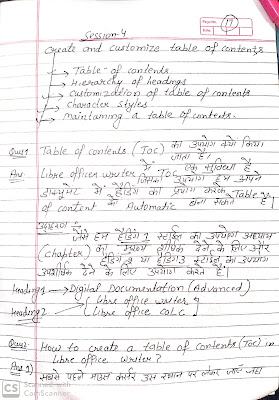 Page No. 17
Date
Session-4
Create and customize table of contents
→ Table of contents
→ Hierarchy of headings
→ Customization of table of contents
→ Character styles
→ Maintaining a table of contents.
Ques1 Table of contents (Toc) का उपयोग क्यों किया
जाता है।
Ans: Libre office writer में Toc एक सुविधा है
जिसका उपयोग हम अपने
डाक्यूमेंट में हेडिंग का प्रयोग करके Table
of content को Automatic बना सकते है।
उदाहरण:-
जैसे हम हेडिंग 1 स्टाईल का उपयोग अध्याय
(chapter) का मुख्य शीर्षक देने के लिए और
हेडिंग 2 या हेडिंग 3 स्टाईल का उपयोग
उपशीर्षक देने के लिए उपयोग करते हैं।
Heading 1 → Digital Documentation (Advanced)
Heading 2 Libre office writer
Libre office calc
Ques2 How to create a table of contents (Toc) in
Libre office writer?
Ans 2) सबसे पहले माउस कर्सर उस स्थान पर लेकर जाए जहाँ
CS Scanned with
CamScanner